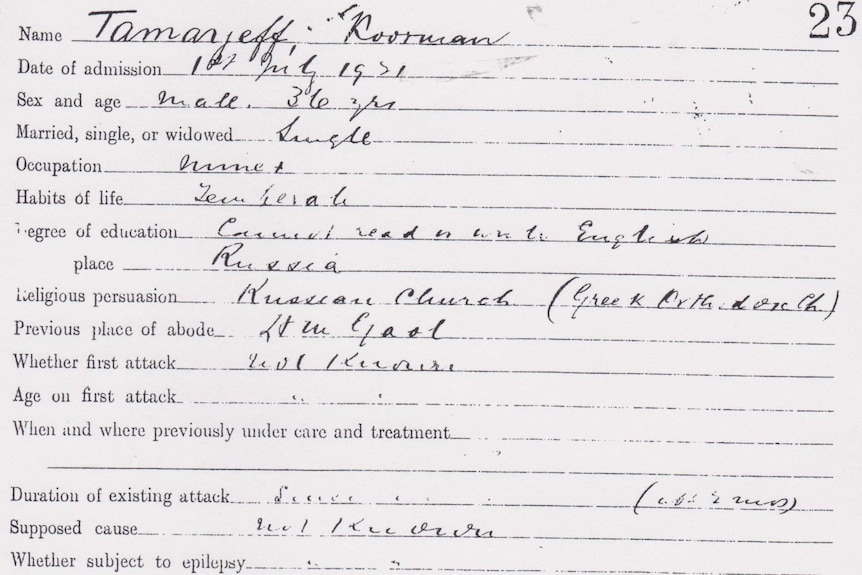 23
Name Tamarjeff, Koorman
Date of admission 1st July 1921
Sex and age Male. 36 yrs
Married, single, or widowed Single
Occupation Miner
Habits of life Temperate
Degree of education Cannot read or write English
place Russia
Religious persuasion Russian Church (Greek Orthodox Ch.)
Previous place of abode H M Gaol
Whether first attack not Known
Age on first attack " "
When and where previously under care and treatment
Duration of existing attack
Supposed cause not Known
Whether subject to epilepsy " "